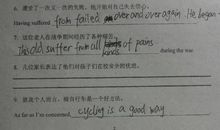 6. 遭受了一次又一次的失败，他开始对自己失去信心。
Having suffered from failed over and over again. He began
7. 这位老人在战争期间经历了各种痛苦。
This old suffer from all kinds of pains during the war
8. 几位家长表达了他们对孩子们在校安全的忧虑。
9. 就我个人而言，骑自行车是一个好方法。
As far as I'm concerned, cycling is a good way